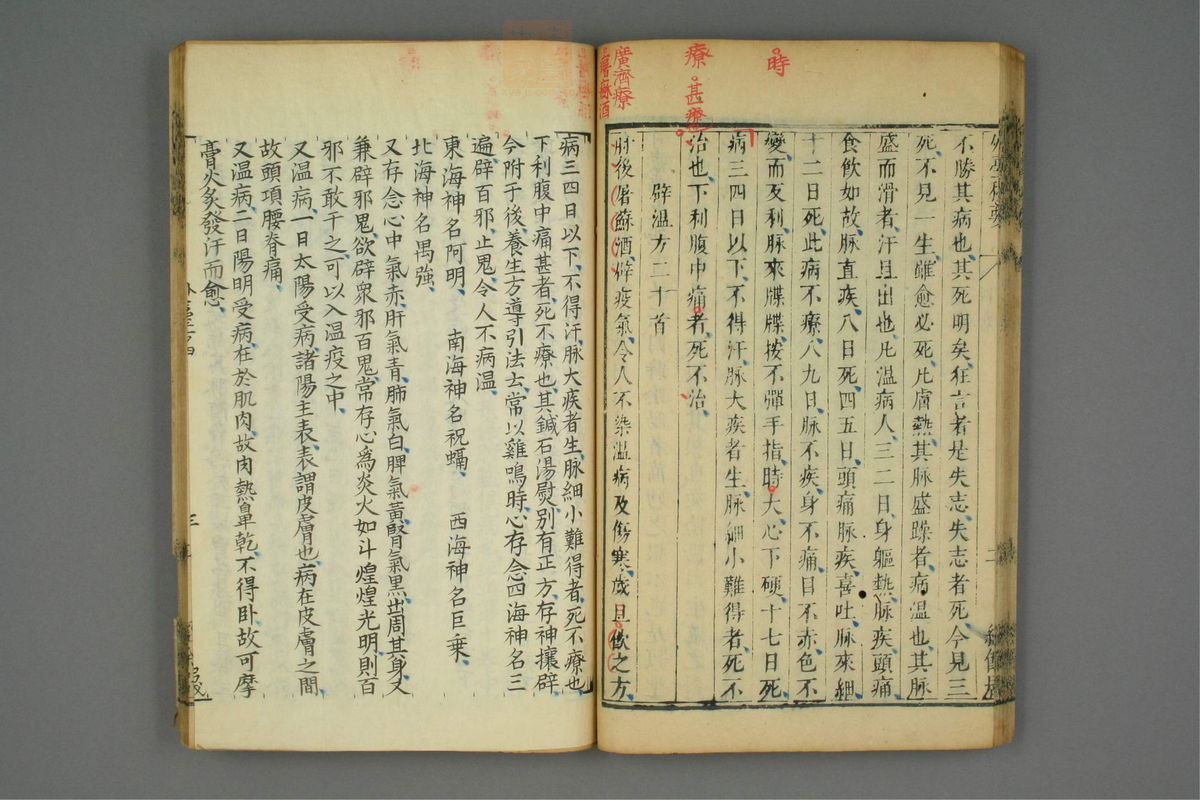 時
療
甚療
廣濟療
屠蘇酒
不勝其病也其死明矣狂言者是失志失志者死今見三
死不見一生雖愈必死凡膚熱其脉盛躁者病溫也其脉
盛而滑者汗且出也凡溫病人三二日身軀熱脉疾頭痛
食飲如故脉直疾八日死四五日頭痛脉疾喜吐脉來細
十二日死此病不療八九日脉不疾身不痛目不赤色不
變而反利脉來牒牒按不彈手指時大心下硬十七日死
病三四日以下不得汗脉大疾者生脉細小難得者死不
治也下利腹中痛者死不治
辟溫方二十首
肘後屠蘇酒辟疫氣令人不染溫病及傷寒歲旦飲之方
病三四日以下、不得汗、脉大疾者生、脉細小難得者、死不療也
下利腹中痛甚者、死不療也、其鍼石湯熨、別有正方、存神攘辟
今附于後、養生方導引法云、常以雞鳴時、心存念四海神名三
遍、辟百邪、止鬼、令人不病溫、
東海神名阿明、 南海神名祝螎、 西海神名巨乗、
北海神名禺強、
又存念心中氣赤、肝氣青、肺氣白、脾氣黃、腎氣黑、出周其身、又
兼辟邪鬼、欲辟衆邪百鬼、常存心為炎火如斗、煌煌光明、則百
邪不敢干之、可以入溫疫之中、
又溫病一日、太陽受病、諸陽主表、表謂皮膚也、病在皮膚之間、
故頭項腰脊痛、
又溫病二日、陽明受病、在於肌肉、故肉熱鼻乾、不得卧、故可摩
膏火灸發汗而愈、
二
三